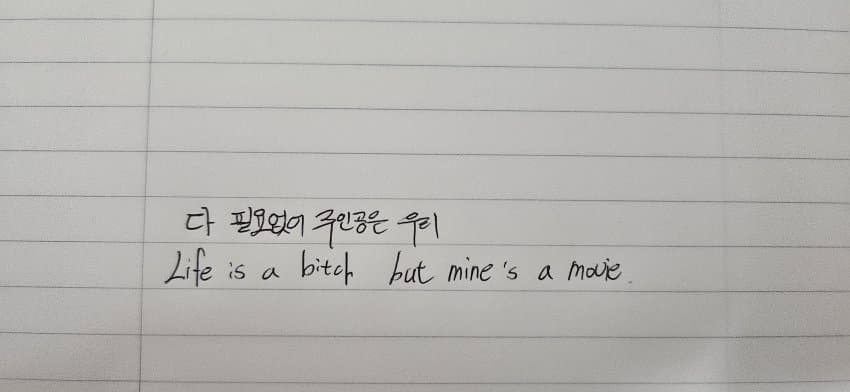 다 필요없어 주인공은 우리
Life is a bitch but mine's a movie.